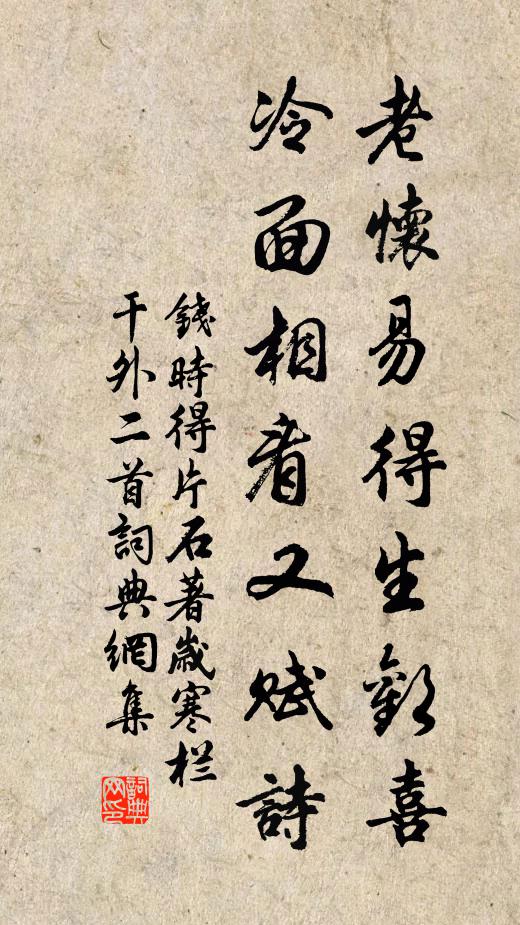 老懷易得生歡喜
冷面相看又賦詩
錢時得片石著歲寒栏
干外二首詞典網集
詞典
网印